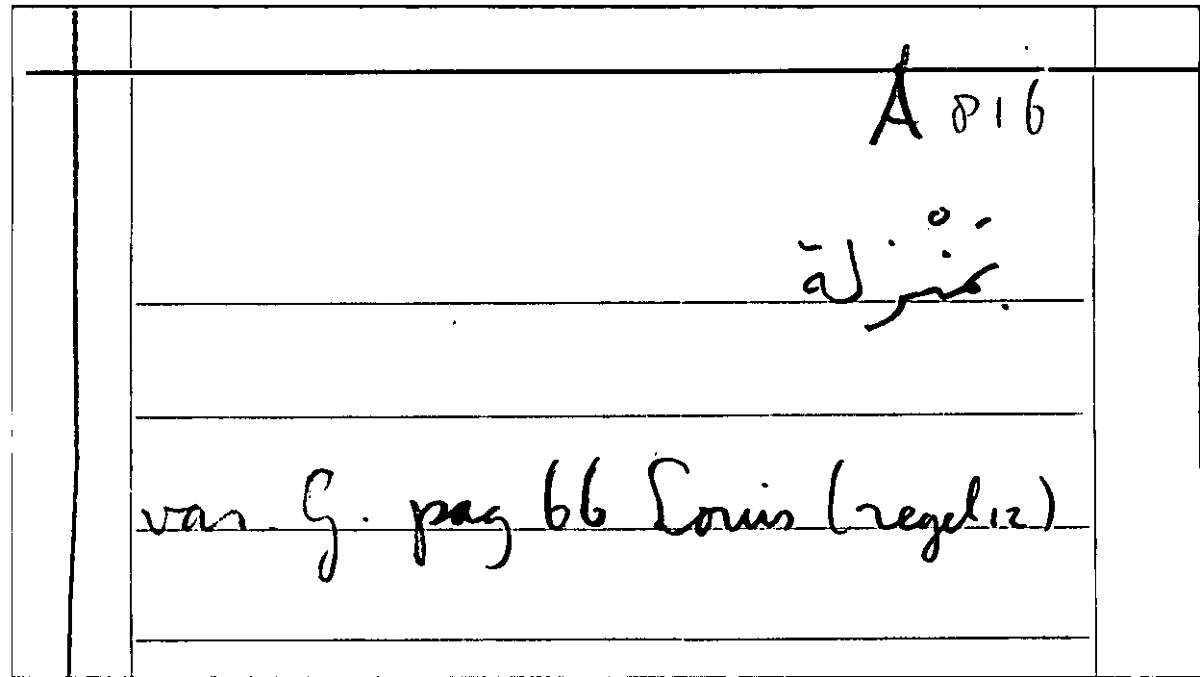 A 816
بمَنْزلة
var. G. pag 66 Louis (regel 12)